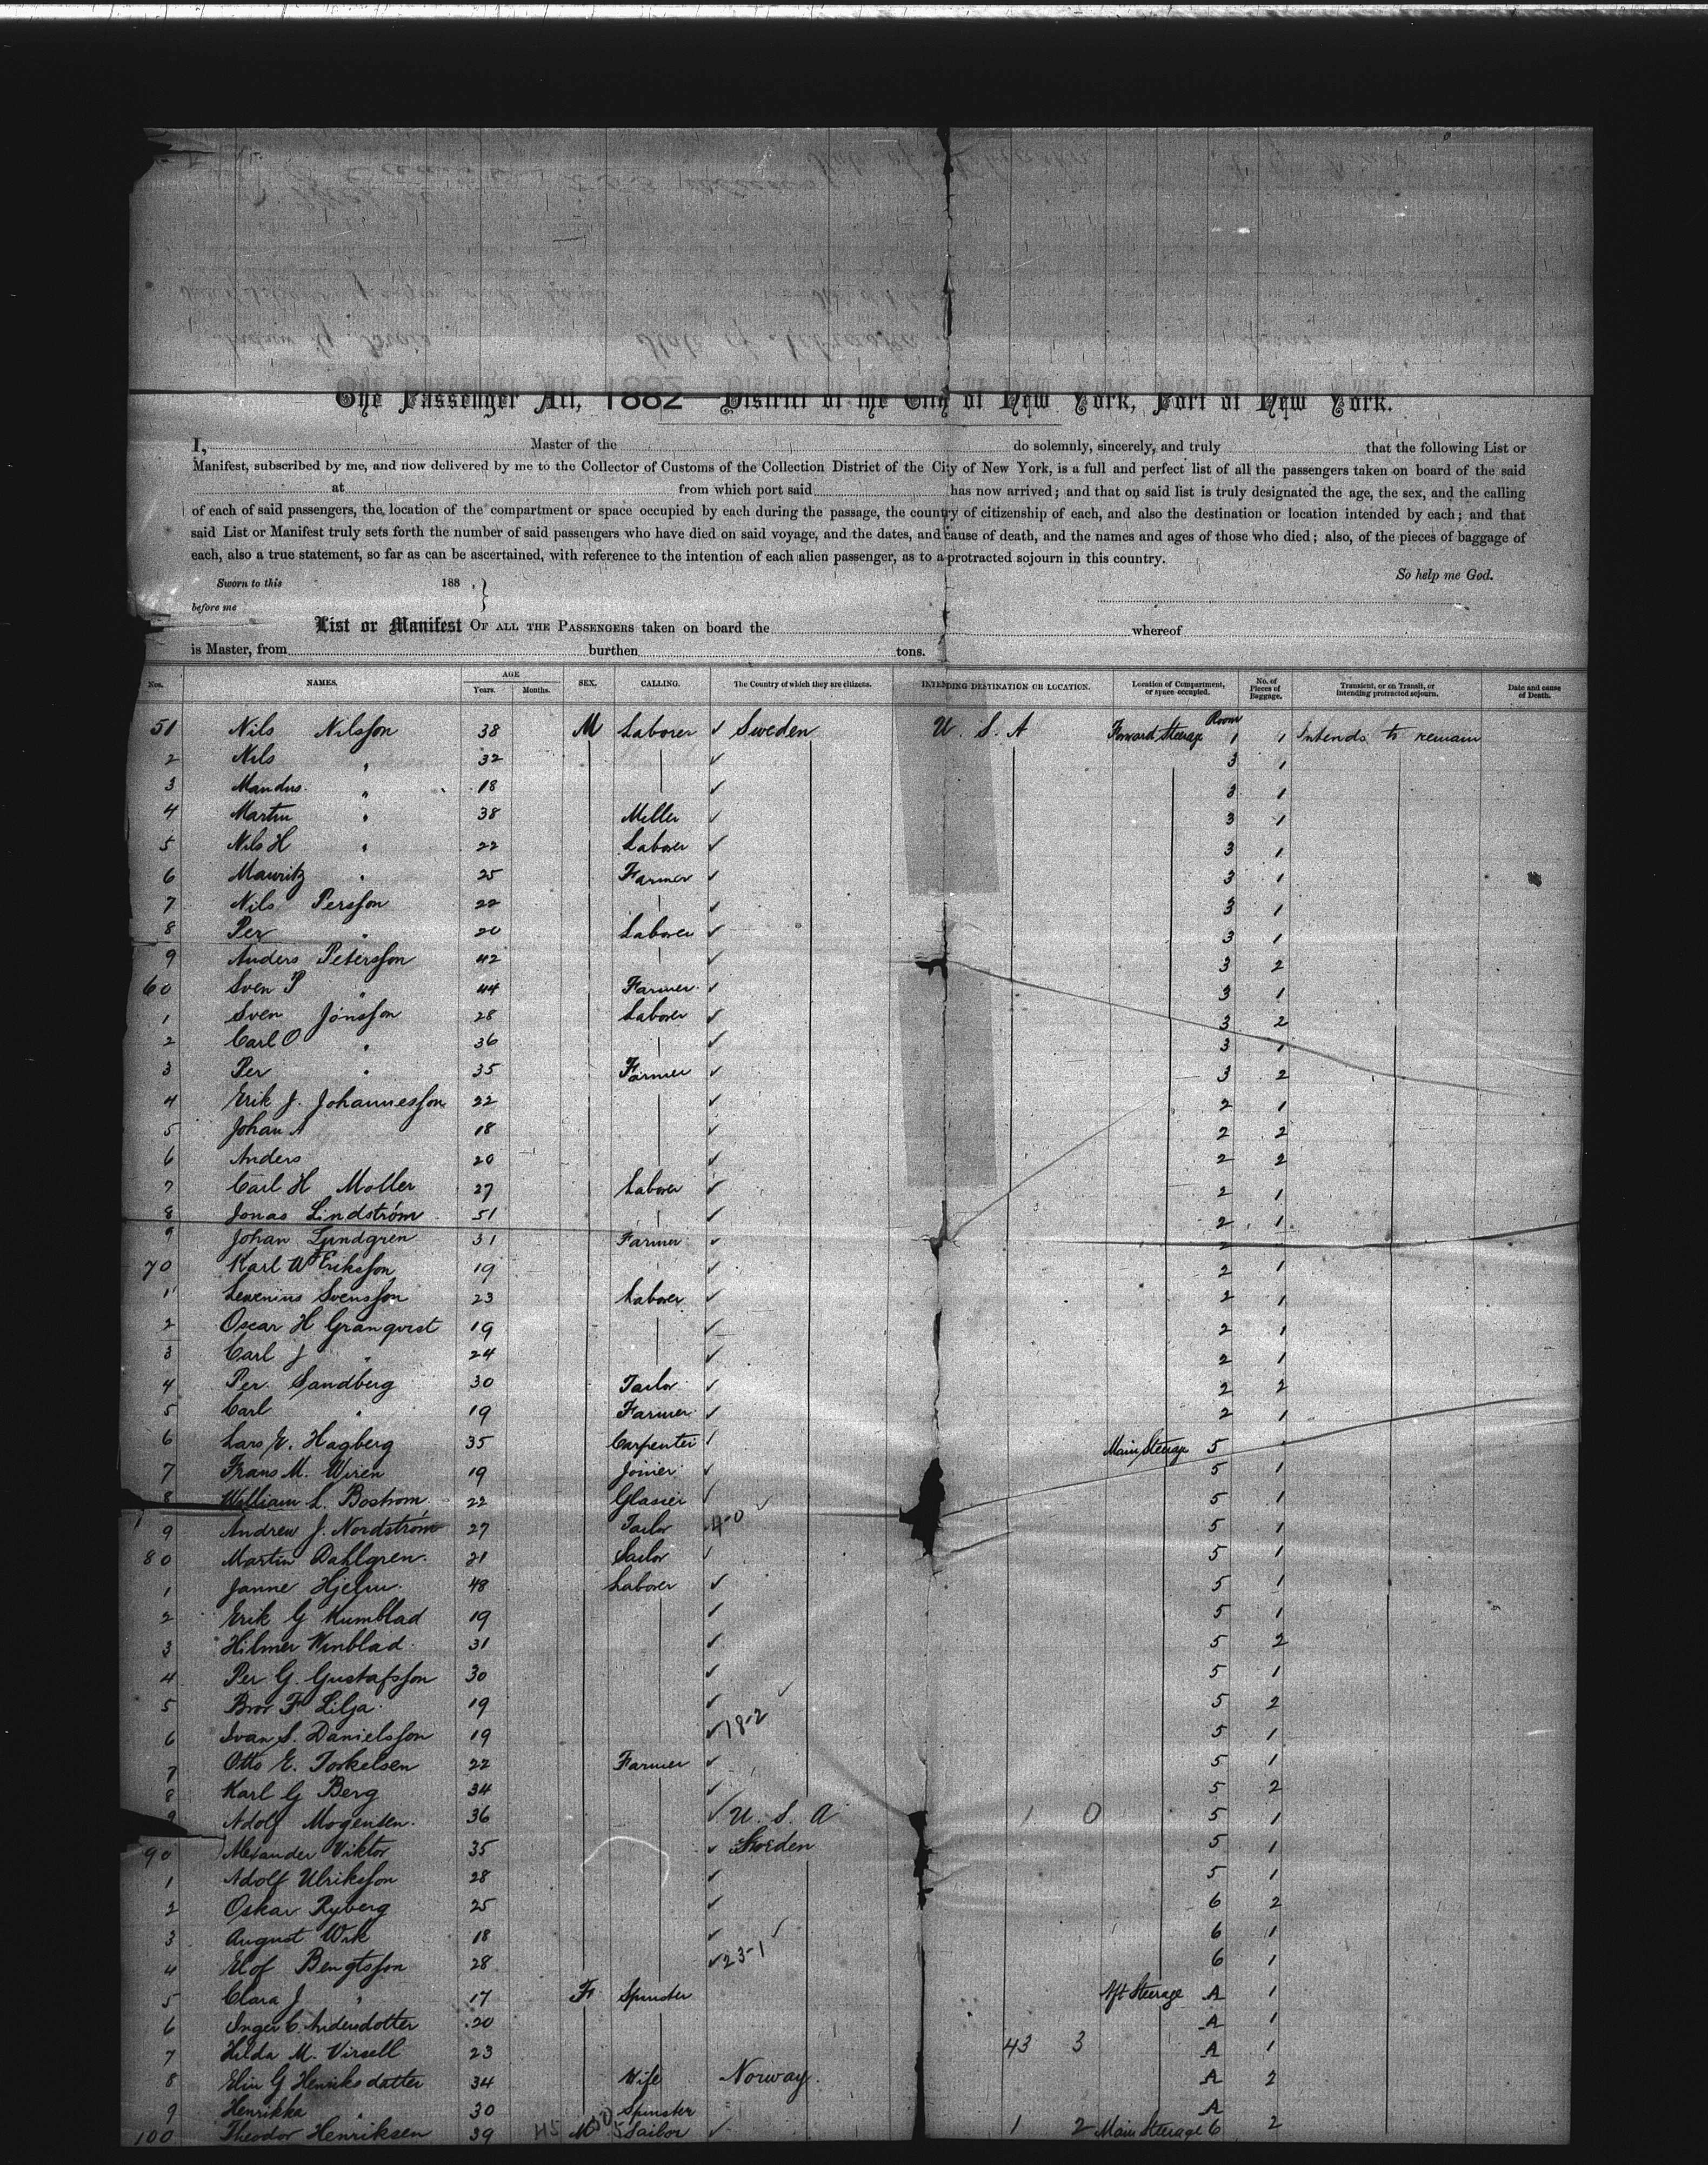 The Passenger Act, 1882 District of the City of New York, Port of New York.
I, Master of the do solemnly, sincerely, and truly that the following List or
Manifest, subscribed by me, and now delivered by me to the Collector of Customs of the Collection District of the City of New York, is a full and perfect list of all the passengers taken on board of the said
at from which port said has now arrived; and that on said list is truly designated the age, the sex, and the calling
of each of said passengers, the location of the compartment or space occupied by each during the passage, the country of citizenship of each, and also the destination or location intended by each; and that
said List or Manifest truly sets forth the number of said passengers who have died on said voyage, and the dates, and cause of death, and the names and ages of those who died; also, of the pieces of baggage of
each, also a true statement, so far as can be ascertained, with reference to the intention of each alien passenger, as to a protracted sojourn in this country.
So help me God.
Sworn to this 188 ,
before me
List or Manifest OF ALL THE PASSENGERS taken on board the whereof
is Master, from burthen tons.
Nos. NAMES. AGE Years. Months. SEX. CALLING. The Country of which they are citizens. INTENDING DESTINATION OR LOCATION. Location of Compartment, or space occupied. No. of Pieces of Baggage. Transient, or on Transit, or intending protracted sojourn. Date and cause of Death.
Room
51 Nils Nilsson 38 M Laborer ✓ Sweden U. S. A Forward Steerage 1 1 Intends to remain
2 Nils " 32 ✓ 3 1
3 Mandus " 18 ✓ 3 1
4 Martin " 38 Miller ✓ 3 1
5 Nils H " 22 Laborer ✓ 3 1
6 Mauritz " 25 Farmer ✓ 3 1
7 Nils Persson 22 ✓ 3 1
8 Per " 20 Laborer ✓ 3 1
9 Anders Petersson 42 ✓ 3 2
60 Sven P " 44 Farmer ✓ 3 1
1 Sven Jonsson 28 Laborer ✓ 3 2
2 Carl O " 36 ✓ 3 1
3 Per " 35 Farmer ✓ 3 2
4 Erik J. Johannesson 22 ✓ 2 1
5 Johan A 18 ✓ 2 2
6 Anders 20 ✓ 2 2
7 Carl H Moller 27 Laborer ✓ 2 1
8 Jonas Lindström 51 ✓ 2 1
9 Johan Lundgren 31 Farmer ✓ 2
70 Karl W Eriksson 19 ✓ 2 1
1 Svensson 23 Laborer ✓ 2 1
2 Oscar H Granqvist 19 ✓ 2 1
3 Carl J " 24 ✓ 2 1
4 Per Sandberg 30 Tailor ✓ 2 2
5 Carl " 19 Farmer ✓ 2 1
6 Lars E. Hagberg 35 Carpenter ✓ Main Steerage 5 1
7 Frans M. Wiren 19 Joiner ✓ 5 1
8 William L. Bostrom 22 Glasier ✓ 5 1
9 Andrew J. Nordström 27 Tailor 4-0 5 1
80 Martin Dahlgren 21 Sailor ✓ 5 1
1 Janne Hjelm 48 Laborer ✓ 5 1
2 Erik G Kumblad 19 ✓ 5 1
3 Hilmer Winblad 31 ✓ 5 2
4 Per G. Gustafsson 30 ✓ 5 1
5 Bror F Lilja 19 ✓ 5 2
6 Ivan S. Danielsson 19 ✓ 18-2 5 1
7 Otto E. Torkelsen 22 Farmer ✓ 5 1
8 Karl G Berg 34 ✓ 5 2
9 Adolf Mogensen 36 ✓ U. S. A 1 0 5 1
90 Alexander Viktor 35 ✓ Sweden 5 1
1 Adolf Ulriksson 28 ✓ 5 1
2 Oskar Ryberg 25 ✓ 6 2
3 August Wik 18 ✓ 6 1
4 Elof Bengtsson 28 ✓ 23-1 6 1
5 Clara J " 17 F Spinster Aft Steerage A 1
6 Inger C. Andersdotter 20 A 1
7 Hilda M. Virsell 23 43 3 A 1
8 Elin G Henriksdatter 34 Wife Norway A 2
9 Henrikka " 30 Spinster A
100 Theodor Henriksen 39 M Sailor ✓ 1 2 Main Steerage 6 2